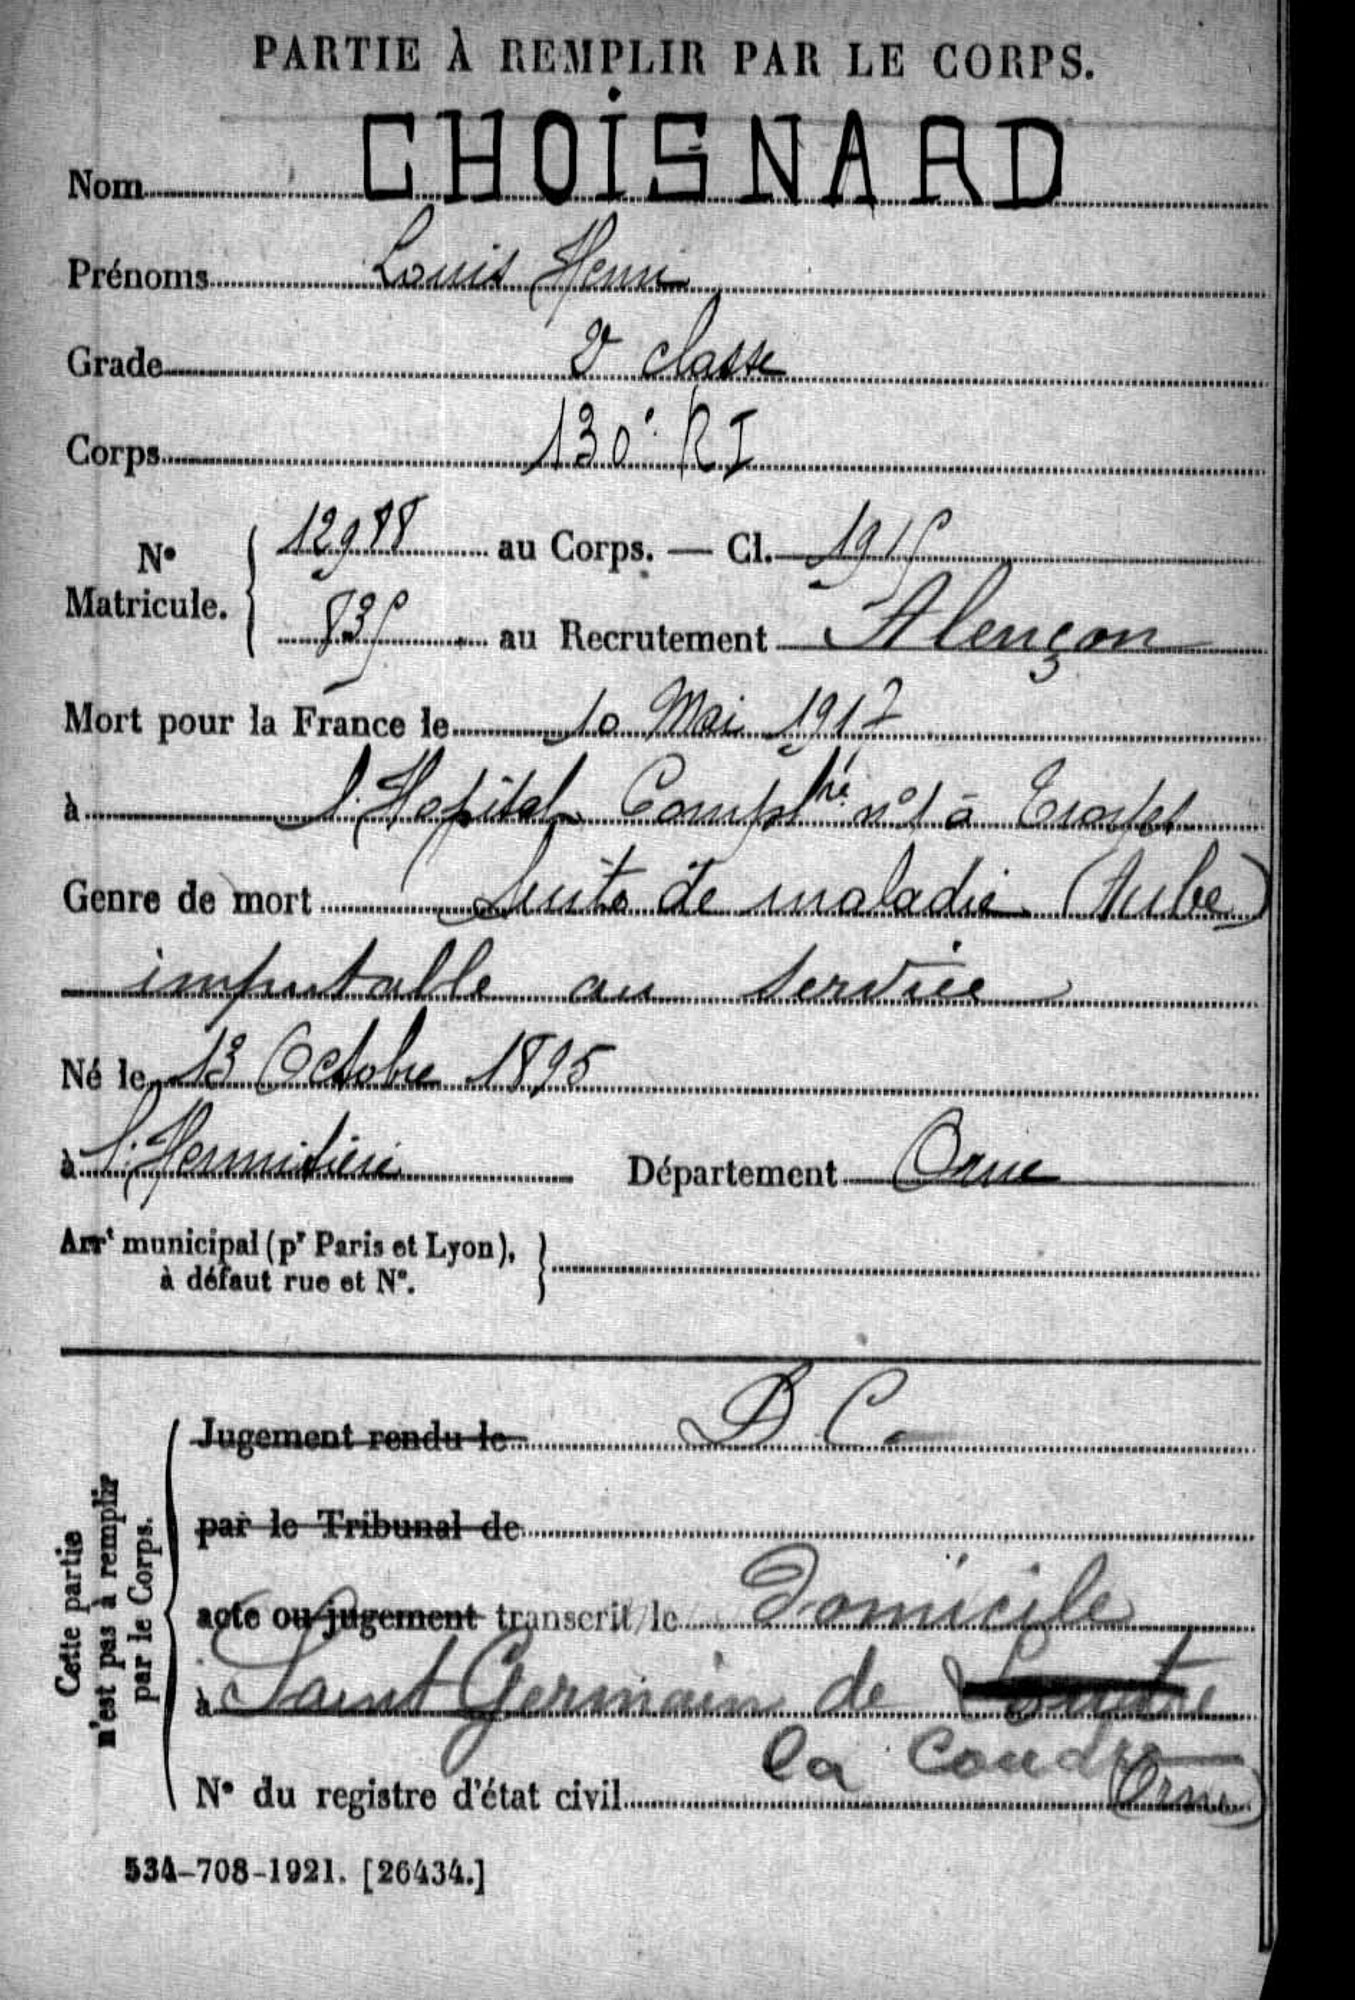 PARTIE À REMPLIR PAR LE CORPS.
Nom CHOISNARD
Prénoms Louis Henri
Grade 2e classe
Corps 130e RI
N° Matricule. { 12988 au Corps. — Cl. 1915
835 au Recrutement Alençon
Mort pour la France le 10 Mai 1917
à l'Hopital Complre n°1 à Troyes
Genre de mort Suite de maladie (Aube)
imputable au service
Né le 13 Octobre 1895
à l'Hermitière Département Orne
Arrt municipal (pr Paris et Lyon),
à défaut rue et N°.
Cette partie
n'est pas à remplir
par le Corps.
Jugement rendu le D C.
par le Tribunal de
acte ou jugement transcrit le Domicile
à Saint Germain de
la Coudre
N° du registre d'état civil (Orne)
534-708-1921. [26434.]